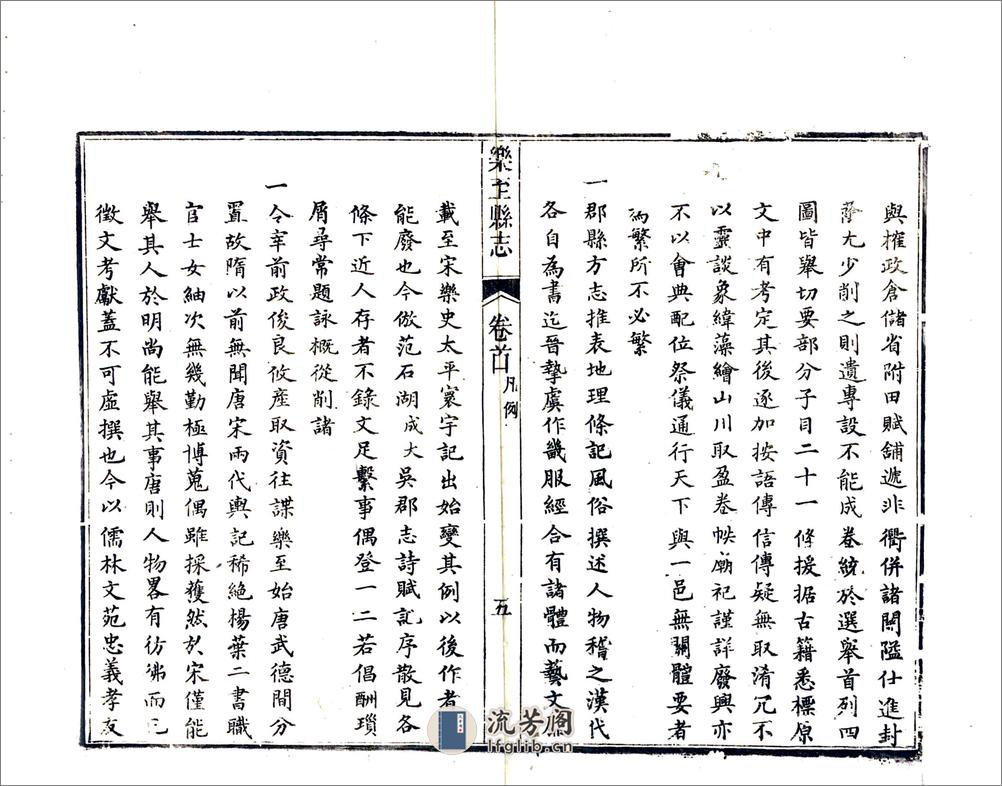 與榷政倉儲省附田賦舖遞非衝併諸關隘仕進封
蔭尢少削之則遺專設不能成卷統於選舉首列四
圖皆舉切要部分子目二十一條援据古籍悉標原
文中有考定其後逐加按語傳信傳疑無取淆冗不
以靈談象緯藻繪山川取盈卷帙廟祀謹詳廢興亦
不以會典配位祭儀通行天下與一邑無關體要者
為繁所不必繁
一郡縣方志推表地理條記風俗撰述人物稽之漢代
各自為書迄晉摯虞作畿服經合有諸體而藝文
樂至縣志
卷首
凡例
五
載至宋樂史太平寰宇記出始變其例以後作者
能廢也今倣范石湖成大吳郡志詩賦記序散見各
條下近人存者不錄文足繫事偶登一二若倡酬瑣
屑尋常題詠概從削諸
一令宰前政俊良攸產取資往諜樂至始唐武德間分
置故隋以前無聞唐宋兩代輿記稀絕楊葉二書職
官士女紬次無幾勤極博蒐偶雖採獲然於宋僅能
舉其人於明尚能舉其事唐則人物畧有彷彿而已
徵文考獻蓋不可虛撰也今以儒林文苑忠義孝友
流芳閣
lfglib.cn